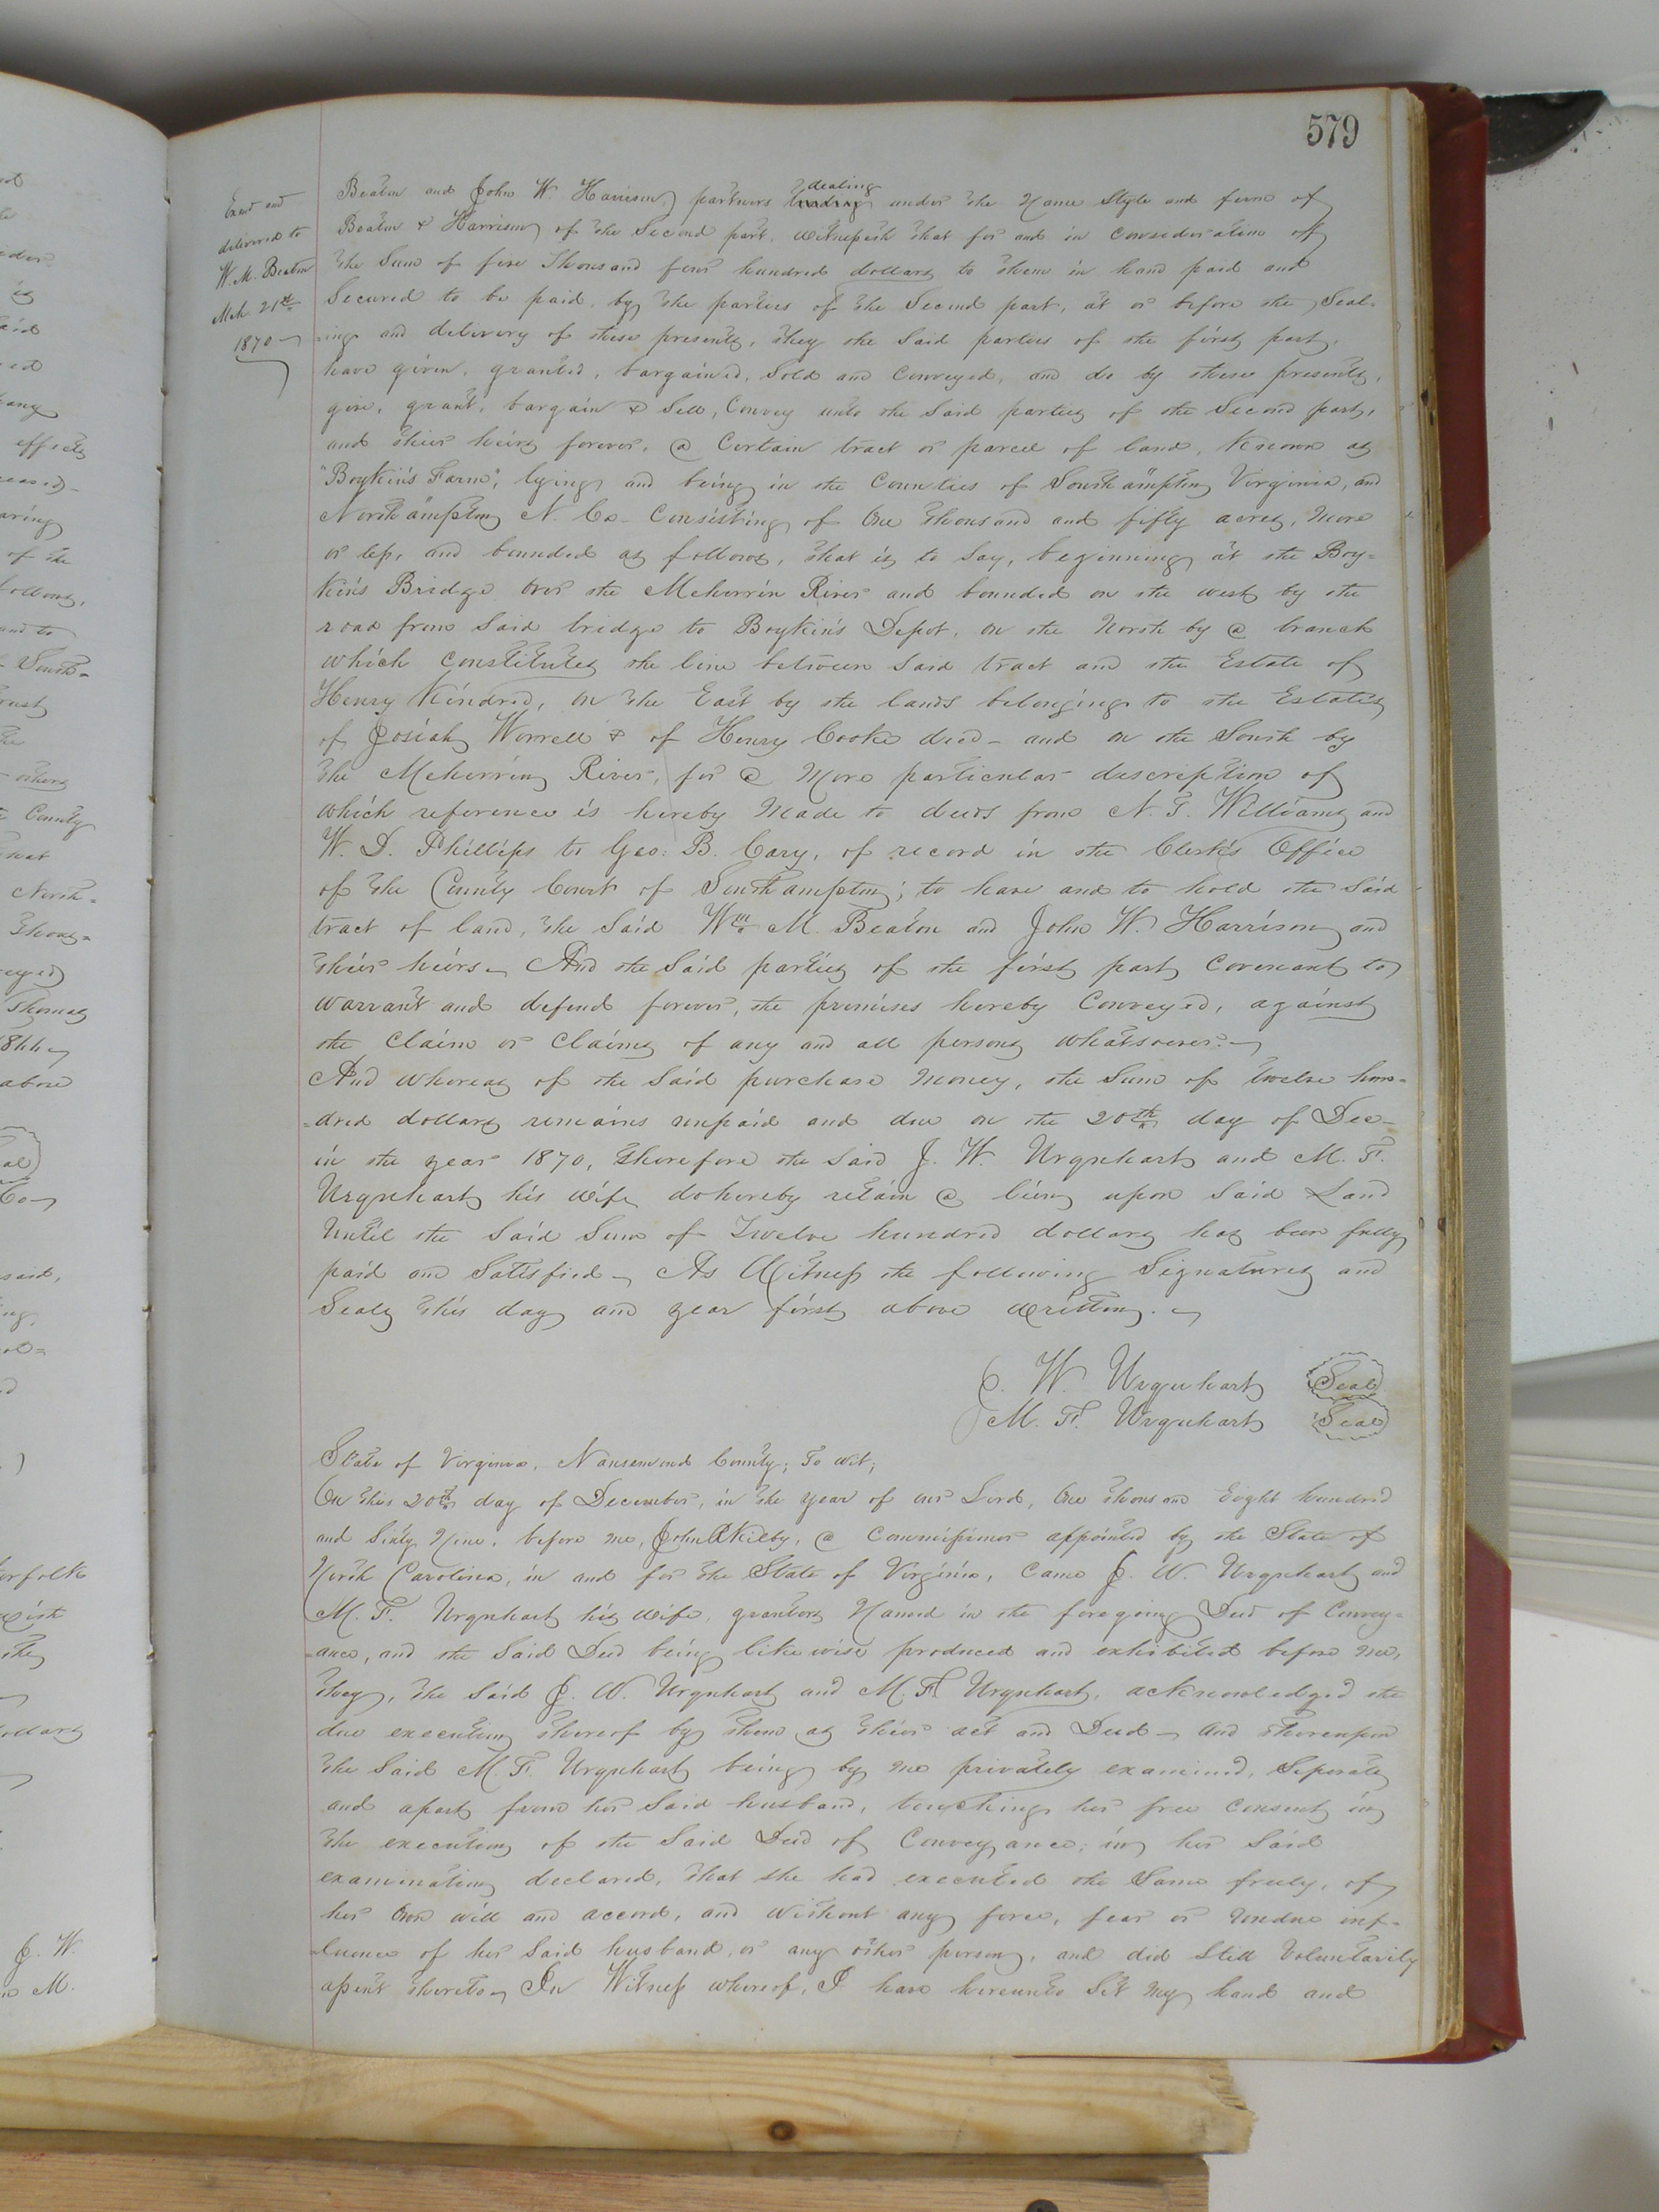 579
Exmd and
delivered to
W. M. Beaton
Mch. 21st
1870
Beaton and John W. Harrison, partners trading dealing under the Name Style and firm of
Beaton & Harrison of the Second part, Witnesseth that for and in Consideration of
the Sum of five Thousand four hundred dollars to them in hand paid and
Secured to be paid, by the parties of the Second part, at or before the Seal=
=ing and delivery of these presents, they the Said parties of the first part,
have given, granted, bargained, Sold and Conveyed, and do by these presents,
give, grant, bargain & Sell, Convey unto the Said parties of the Second part,
and their heirs forever, a Certain tract or parcel of land, Known as
"Boykin's Farm", lying and being in the Counties of Southampton Virginia, and
Northampton N. Ca- Consisting of One thousand and fifty acres, More
or less, and bounded as follows, that is to Say, beginning at the Boy=
kin's Bridge over the Meherrin River and bounded on the west by the
road from Said bridge to Boykin's Depot, on the North by a branch
which Constitutes the line between Said tract and the Estate of
Henry Kindred, on the East by the lands belonging to the Estates
of Josiah Worrell & of Henry Cooke decd- and on the South by
the Meherring River, for a More particular description of
which reference is hereby Made to deeds from N. T. Williams and
W. D. Phillips to Geo: B. Cary, of record in the Clerk's Office
of the County Court of Southampton; to have and to hold the Said
tract of land, the Said Wm M. Beaton and John W. Harrison and
their heirs- And the Said parties of the first part Covenant to
warrant and defend forever, the premises hereby Conveyed, against
the Claim or Claims of any and all persons whatsoever.-
And whereas of the Said purchase Money, the Sum of twelve hun=
=dred dollars remains unpaid and due on the 20th day of Dec-
in the year 1870, Therefore the Said J. W. Urquhart and M. F.
Urquhart his wife do hereby retain a lien upon Said Land
Until the Said Sum of Twelve hundred dollars has been fully
paid and Satisfied- As Witness the following Signatures and
Seals this day and year first above written.-
J. W. Urquhart Seal
M. F. Urquhart Seal
State of Virginia, Nansemond County; To wit;
On this 20th day of December, in the year of our Lord, One thousand Eight hundred
and Sixty Nine, before me, John R Kilby, a Commissioner appointed by the State of
North Carolina, in and for the State of Virginia, Came J. W. Urquhart and
M. F. Urquhart his wife, grantors Named in the foregoing Deed of Convey=
=ance, and the Said Deed being likewise produced and exhibited before me,
they, the Said J. W. Urquhart and M. F. Urquhart, acknowledged the
due execution thereof by them as their act and Deed- And thereupon
the Said M. F. Urquhart being by me privately examined, Seperate
and apart from her Said husband, touching her free Consent in
the execution of the Said Deed of Conveyance; in her Said
examination declared, that she had executed the Same freely, of
her Own will and accord, and without any force, fear or undue inf=
=luence of her Said husband, or any other person, and did Still Voluntarily
assent thereto- In Witness whereof, I have hereunto Set my hand and